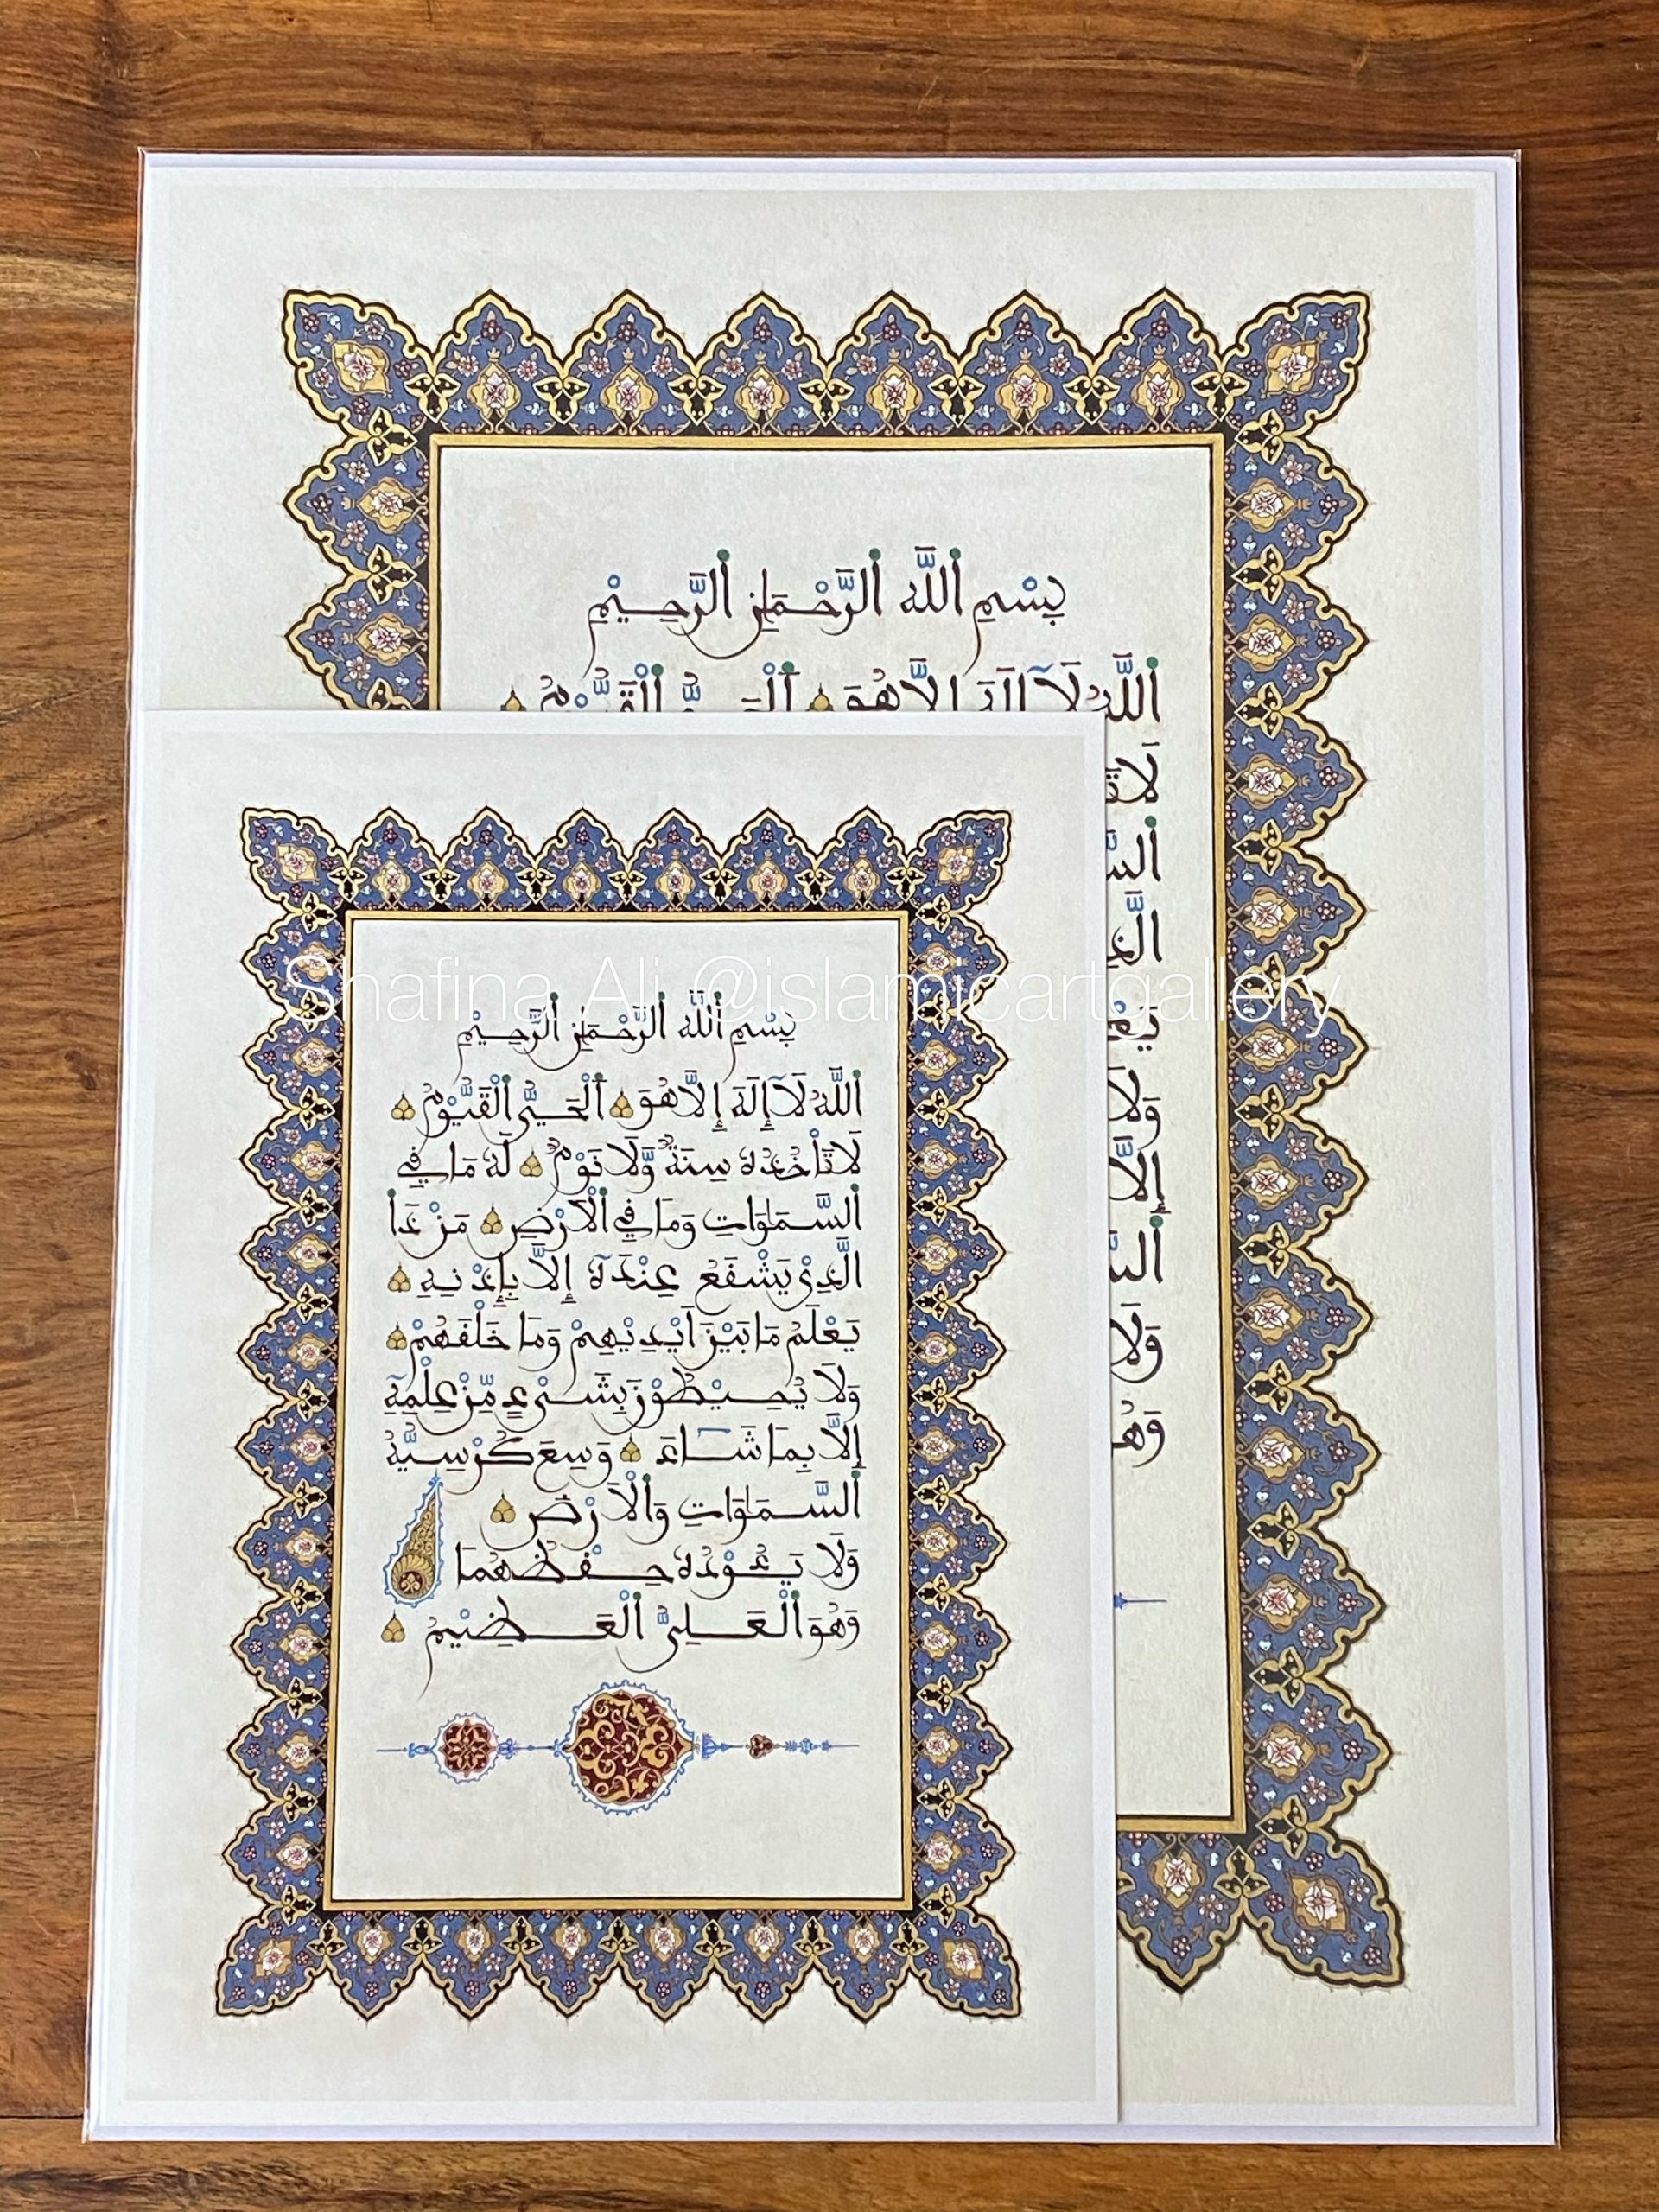 بِسْمِ ٱللَّهِ ٱلرَّحْمَٰنِ ٱلرَّحِيمِ
ٱللَّهُ لَآ إِلَٰهَ إِلَّا هُوَ ٱلْحَيُّ ٱلْقَيُّومُ
لَا تَأْ
ٱلسَّ
ٱلَّذِ
يَعْ
وَلَا
إِلَّا
ٱلسَّ
وَلَا
وَهُ
Shafina Ali @islamicartgallery
بِسْمِ ٱللَّهِ ٱلرَّحْمَٰنِ ٱلرَّحِيمِ
ٱللَّهُ لَآ إِلَٰهَ إِلَّا هُوَ ٱلْحَيُّ ٱلْقَيُّومُ
لَا تَأْخُذُهُ سِنَةٌ وَّلَا نَوْمٌ لَهُ مَا فِي
ٱلسَّمَٰوَاتِ وَمَا فِي ٱلْأَرْضِ مَنْ ذَا
ٱلَّذِيْ يَشْفَعُ عِنْدَهُٓ إِلَّا بِإِذْنِهِ
يَعْلَمُ مَا بَيْنَ أَيْدِيْهِمْ وَمَا خَلْفَهُمْ
وَلَا يُحِيْطُوْنَ بِشَيْءٍ مِّنْ عِلْمِهِٓ
إِلَّا بِمَا شَآءَ وَسِعَ كُرْسِيُّهُ
ٱلسَّمَٰوَاتِ وَٱلْأَرْضَ
وَلَا يَـُٔوْدُهُ حِفْظُهُمَا
وَهُوَ ٱلْعَلِيُّ ٱلْعَظِيْمُ